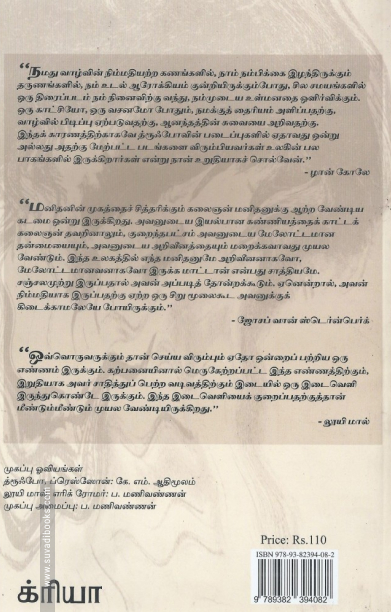 “நமது வாழ்வின் நிம்மதியற்ற கணங்களில், நாம் நம்பிக்கை இழந்திருக்கும்
தருணங்களில், நம் உடல் ஆரோக்கியம் குன்றியிருக்கும்போது, சில சமயங்களில்
ஒரு திரைப்படம் நம் நினைவிற்கு வந்து, நம்முடைய உள்மனதை ஒளிர்விக்கும்.
ஒரு காட்சியோ, ஒரு வசனமோ போதும், நமக்குத் தைரியம் அளிப்பதற்கு,
வாழ்வில் பிடிப்பு ஏற்படுவதற்கு, ஆனந்தத்தின் சுவையை அறிவதற்கு.
இந்தக் காரணத்திற்காகவே த்ரூஃபோவின் படைப்புகளில் ஏதாவது ஒன்று
அல்லது அதற்கு மேற்பட்ட படங்களை விரும்பியவர்கள் உலகின் பல
பாகங்களில் இருக்கிறார்கள் என்று நான் உறுதியாகச் சொல்வேன்.”
- ழான் கோலே
“மனிதனின் முகத்தைச் சித்தரிக்கும் கலைஞன் மனிதனுக்கு ஆற்ற வேண்டிய
கடமை ஒன்று இருக்கிறது. அவனுடைய இயல்பான கண்ணியத்தைக் காட்டக்
கலைஞன் தவறினாலும், குறைந்தபட்சம் அவனுடைய மேலோட்டமான
தன்மையையும், அவனுடைய அறிவீனத்தையும் மறைக்கவாவது முயல
வேண்டும். இந்த உலகத்தில் எந்த மனிதனுமே அறிவீனனாகவோ,
மேலோட்டமானவனாகவோ இருக்க மாட்டான் என்பது சாத்தியமே.
சஞ்சலமுற்று இருப்பதால் அவன் அப்படித் தோன்றக்கூடும். ஏனென்றால், அவன்
நிம்மதியாக இருப்பதற்கு ஏற்ற ஒரு சிறு மூலைகூட அவனுக்குக்
கிடைக்காமலேயே போயிருக்கும்.”
- ஜோசப் வான் ஸ்டெர்ன்பெர்க்
“ஒவ்வொருவருக்கும் தான் செய்ய விரும்பும் ஏதோ ஒன்றைப் பற்றிய ஒரு
எண்ணம் இருக்கும். கற்பனையினால் மெருகேற்றப்பட்ட இந்த எண்ணத்திற்கும்,
இறுதியாக அவர் சாதித்துப் பெற்ற வடிவத்திற்கும் இடையில் ஒரு இடைவெளி
இருந்துகொண்டே இருக்கும். இந்த இடைவெளியைக் குறைப்பதற்குத்தான்
மீண்டும்மீண்டும் முயல வேண்டியிருக்கிறது.”
- லூயி மால்
முகப்பு ஓவியங்கள்
த்ரூஃபோ, ப்ரெஸ்ஸோன்: கே. எம். ஆதிமூலம்
லூயி மால், எரிக் ரோமர்: ப. மணிவண்ணன்
முகப்பு அமைப்பு: ப. மணிவண்ணன்
www.suvadibooks.com
Price: Rs.110
ISBN 978-93-82394-08-2
9 789382 394082
க்ரியா